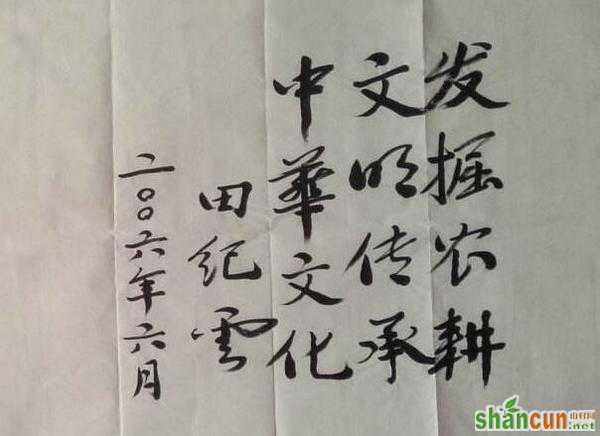 发掘农耕
文明传承
中華文化
田纪雲
二〇〇六年六月
shancun
山村网
.net